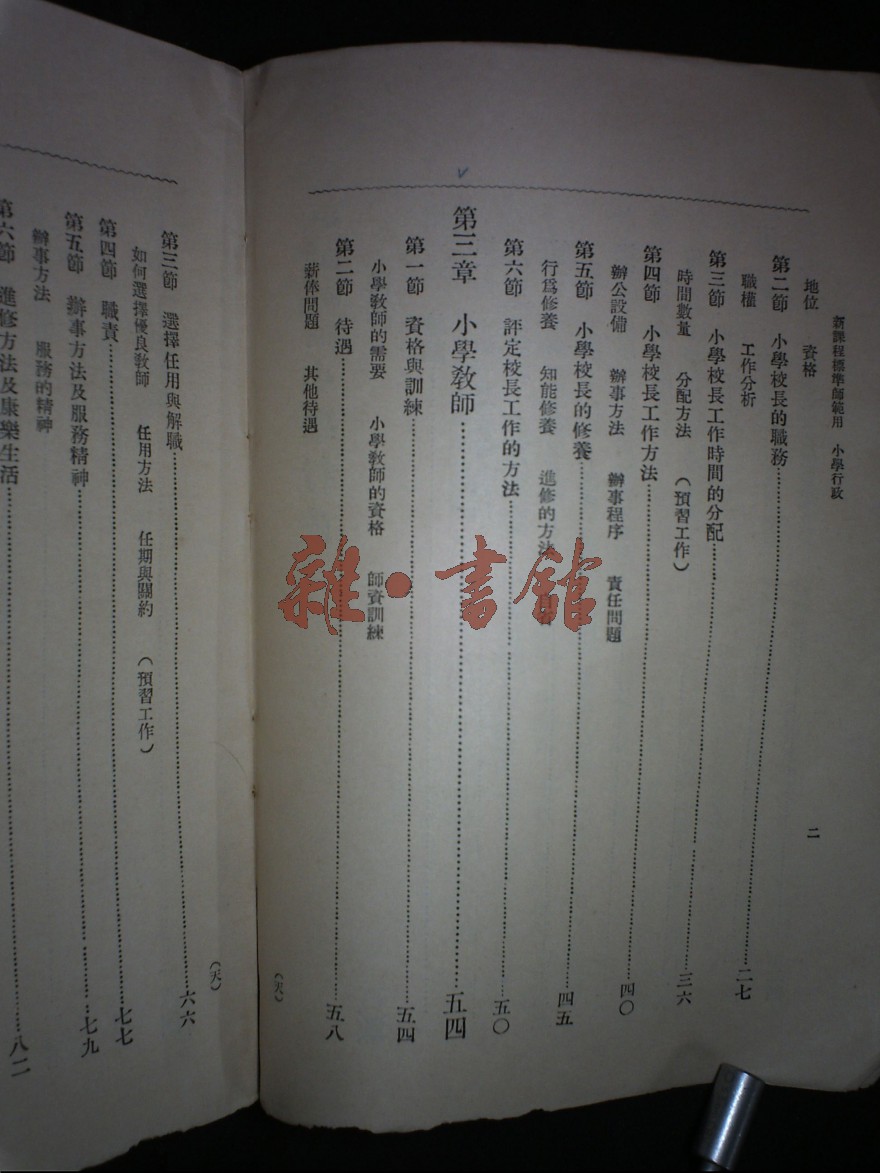 新課程標準師範用　小學行政
二
地位　資格
第二節　小學校長的職務…………二七
職權　工作分析
第三節　小學校長工作時間的分配…………三六
時間數量　分配方法　（預習工作）
第四節　小學校長工作方法…………四〇
辦公設備　辦事方法　辦事程序　責任問題
第五節　小學校長的修養…………四五
行爲修養　知能修養　進修的方法
第六節　評定校長工作的方法…………五〇
第三章　小學教師…………五四
第一節　資格與訓練…………五四
小學教師的需要　小學教師的資格　師資訓練
第二節　待遇…………五八
薪俸問題　其他待遇
（天）
（天）
第三節　選擇任用與解職…………六六
如何選擇優良教師　任用方法　任期與關約　（預習工作）
第四節　職責…………七七
第五節　辦事方法及服務精神…………七九
辦事方法　服務的精神
第六節　進修方法及康樂生活…………八二
雜·書館